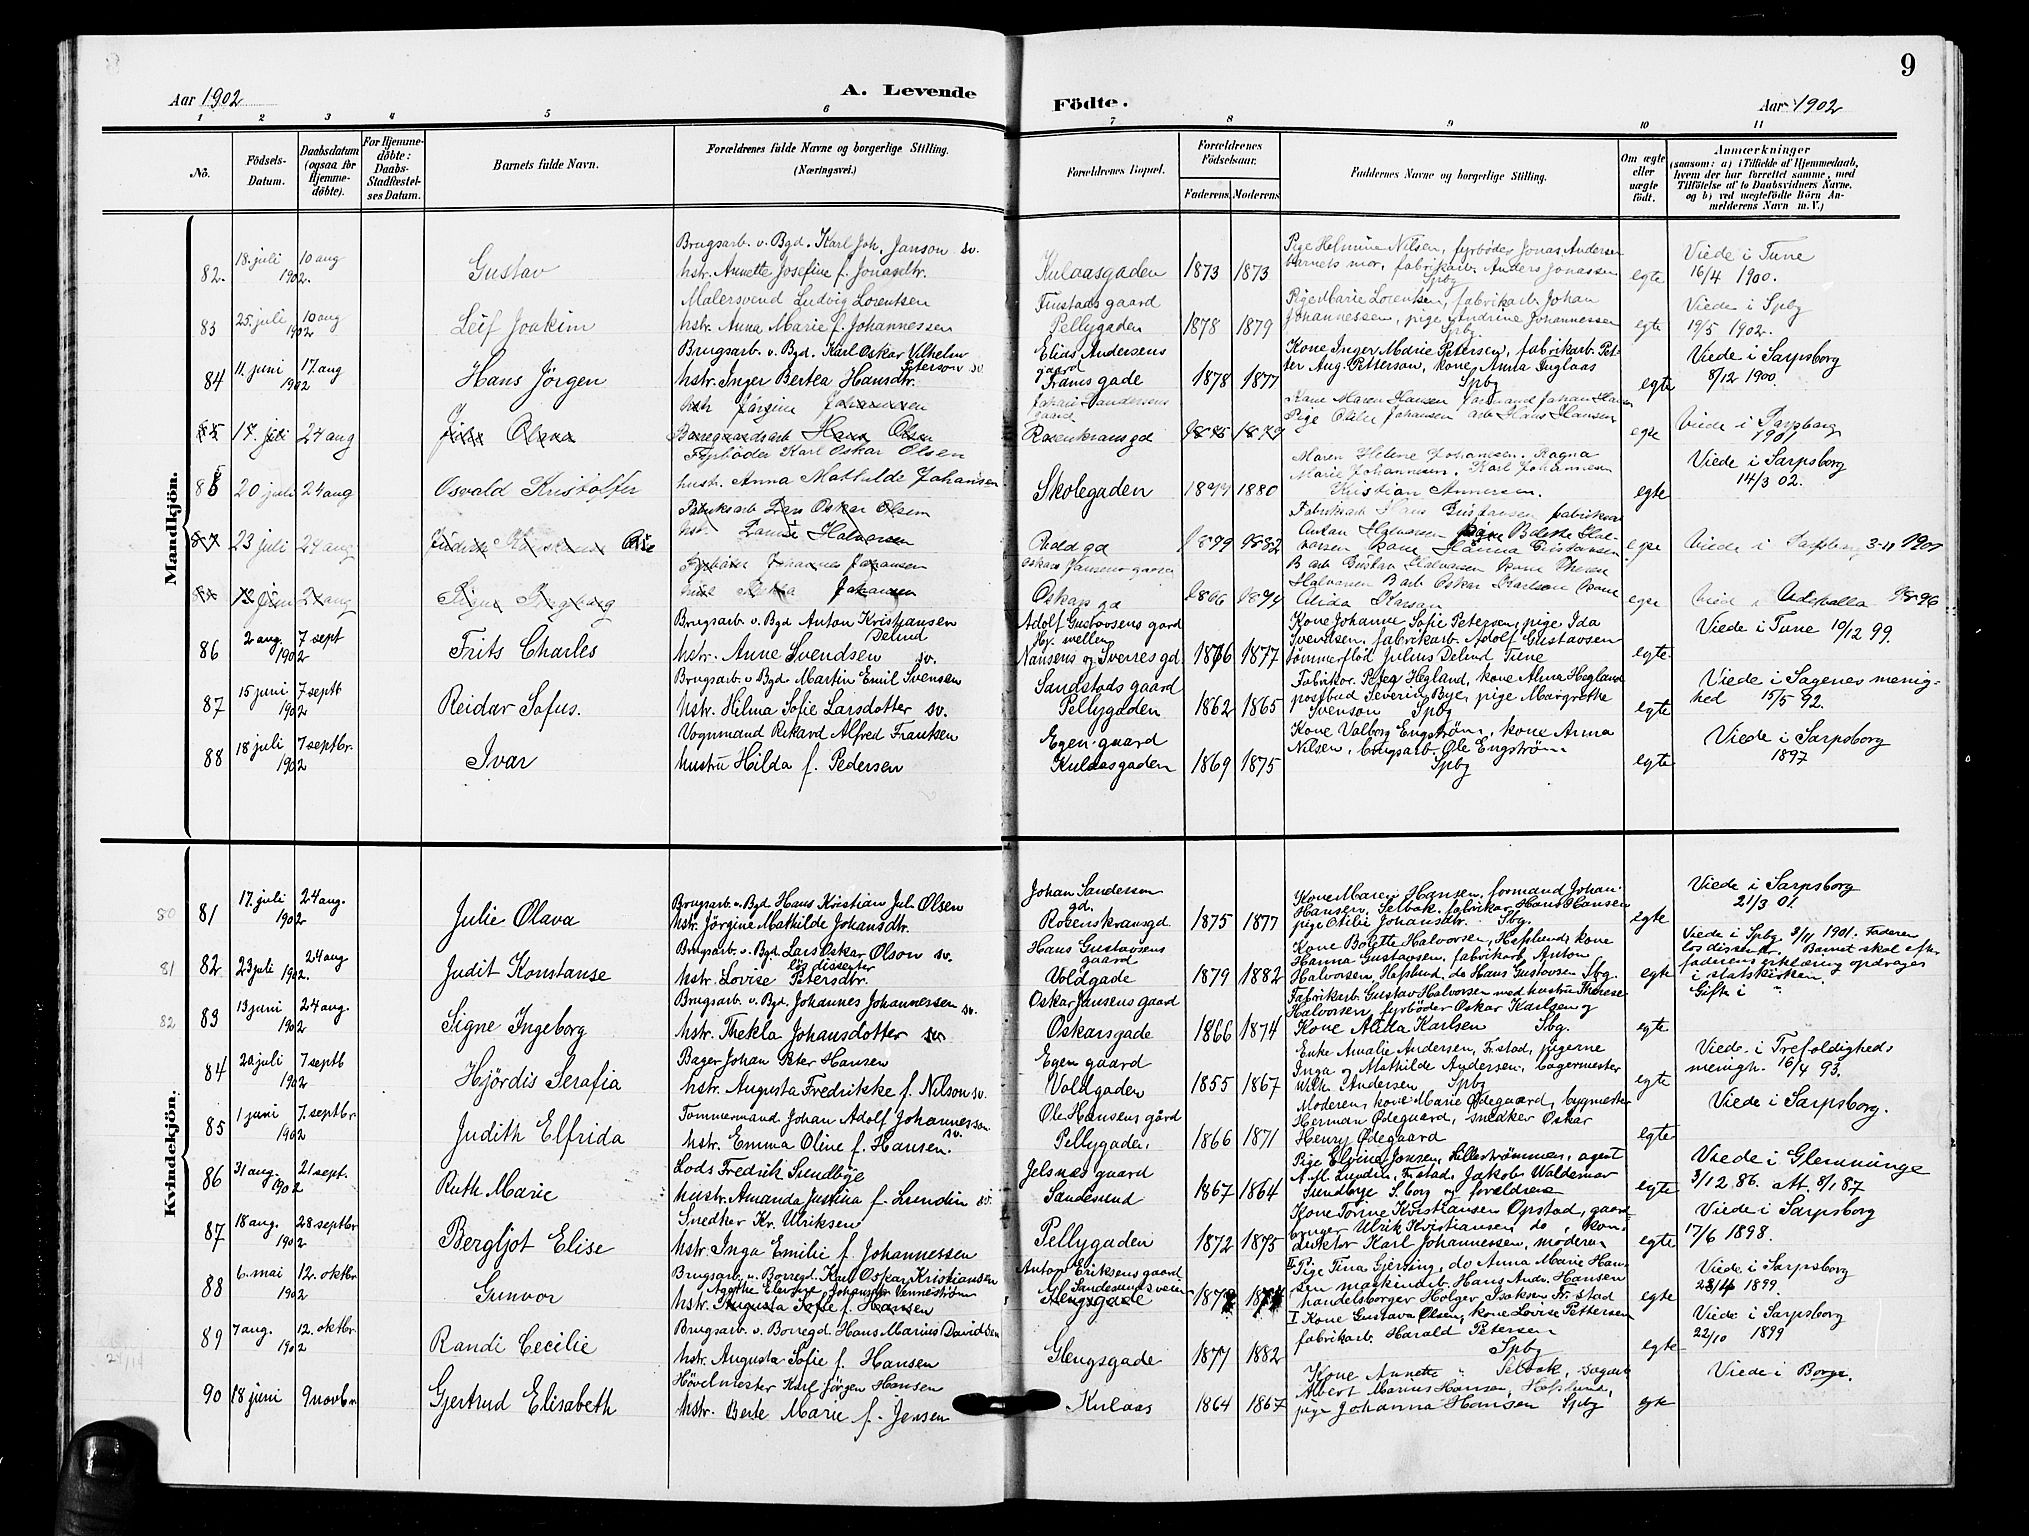 9
Aar 1902
A. Levende
Födte.
Aar 1902
1 2 3 4 5 6 7 8 9 10 11
No.
Födsels-Datum.
Daabsdatum (ogsaa for Hjemmedöbte).
For Hjemmedöbte: Daabs-Stadfæstelses Datum.
Barnets fulde Navn.
Forældrenes fulde Navne og borgerlige Stilling.
(Næringsvei.)
Forældrenes Bopæl.
Forældrenes Födselsaar.
Faderens. Moderens.
Faddernes Navne og borgerlige Stilling.
Om ægte eller uægte födt.
Anmærkninger
(saasom: a) i Tilfælde af Hjemmedaab, hvem der har forrettet samme, med Tilföielse af to Daabsvidners Navne, og b) ved uægtefödte Börn Anmelderens Navn m. V.)
Mandkjön.
82. 18. juli 1902. 10 aug Gustav
Brugsarb. v. Bgd. Karl Joh. Janson sv.
hstr. Annette Josefine f. Jonasdtr.
Kulaasgaden 1873 1873
Pige Helmine Nilsen, fyrbøder Jonas Andersen
barnets mor, fabrikarb. Anders Jonassen
Spbg
egte
Viede i Tune
16/4 1900.
83 25. juli 1902 10 aug Leif Joakim
Malersvend Ludvig Lorentsen
hstr. Anna Marie f. Johannessen
Finstads gaard
Pellygaden 1878 1879
Pige Marie Lorentsen, fabrikarb. Johan
Johannessen, pige Andrine Johannessen
Spbg
egte
Viede i Spbg
19/5 1902.
84 11. juni 1902 17. aug Hans Jörgen
Brugsarb. v. Bgd. Karl Oskar Vilhelm
Peterson sv.
hstr. Inger Bertea Hansdtr.
Elias Andersens
gaard
Framsgade 1878 1877
Kone Inger Marie Petersen, fabrikarb. Pet-
ter Aug. Petterson, kone Anna Inglaas
Spbg
egte
Viede i Sarpsborg
8/12 1900.
85 17. juli 24 aug Julie Olava
hstr Jørgine Johansen
Borregaardsarb Hans Olsen
Johan Sandersens
gaard
Rosenkransgd 1875 1879
Kone Maren Hansen Formand Johan Hansen
Pige Otilie Johansen arb Hans Hansen
egte
Viede i Sarpsborg
1901
85 20 juli 24 aug Osvald Kristoffer
Fyrbøder Karl Oskar Olsen
hustr. Anna Mathilde Johansen
Skolegaden 1877 1880
Maren Helene Johansen. Ragna
Marie Johannesen. Karl Johannesen
Kristian Annersen.
egte
Viede i Sarpsborg
14/3 02.
87 23 juli 24 aug
Fabriksarb Lars Oskar Olsen
hstr. Lovise Halvorsen
Voldgd 1879 1882
Fabrikarb Hans Gustavsen fabriksar
Anton Halvorsen pige Bolette Hal-
vorsen kone Hanna Gustavsen
egte
Viede i Sarpsborg 3-11 1901
88 13 juni 24 aug Signe Ingeborg
Fyrbøder Johannes Johansen
hstr Thekla Johansen
Oskar Jansens gaard
Oskarsgd 1866 1874
B arb Gustav Halvorsen kone Therese
Halvorsen B arb Oskar Karlson kone
Alida Karlson
egte
Viede i Udevalla 1896
86 2 aug. 1902 7 sept Frits Charles
Brugsarb. v. Bgd Anton Kristiansen
Delund
hstr. Anne Svendsen sv.
Adolf Gustavsens gård
Hj. mellem
Nansens og Sverres gd 1876 1877
Kone Johanne Sofie Petersen, pige Ida
Svendsen, fabrikarb. Adolf Gustavsen
tømmerflød Julius Delund Tune
egte
Viede i Tune 10/12 99.
87 15 juni 1902 7 septb Reidar Sofus.
Brugsarb. v Bgd. Martin Emil Svensen
hstr. Hilma Sofie Larsdotter sv.
Sandstads gaard
Pellygaden 1862 1865
Fabrikor. Peleg Hegland, kone Alma Hegland
postbud Severin Bye, pige Margrethe
Svenson Spbg
egte
Viede i Sagenes menig-
hed 15/5 92.
88 18 juli 1902 7 septbr. Ivar
Vognmand Rikard Alfred Frantsen
hustru Hilda f. Pedersen
Egen gaard
Kulaasgaden 1869 1875
Kone Valborg Engstrøm, kone Anna
Nilsen, brugsarb. Ole Engstrøm
Spbg
egte
Viede i Sarpsborg
1897
Kvindekjön.
80
81 17. juli 1902 24 aug. Julie Olava
Brugsarb. v. Bgd Hans Kristian Jul. Olsen
hstr. Jörgine Mathilde Johansdtr.
Johan Sanderson
gd.
Rosenskransgd. 1875 1877
Kone Maren Hansen, formand Johan
Hansen, Selbak, fabrikar Hans Hansen
pige Otilie Johansdtr. Sbg.
egte
Viede i Sarpsborg
21/3 01.
81
82 23 juli 1902. 24 aug Judit Konstanse
Brugsarb. v. Bgd. Lars Oskar Olson sv.
løs dissenter
hstr. Lovise Petersdtr.
Hans Gustavsens
gaard
Voldgade 1879 1882
Kone Bolette Halvorsen, Hafslund, kone
Hanna Gustavsen, fabrikarb. Anton
Halvorsen, Hafslund, do Hans Gustavsen Sbg.
egte
Viede i Spbg 3/11 1901. Faderen
løs dissenter. Barnet skal efter
faderens erklæring opdrages
i statskirken.
82
83 13 juni 1902 24 aug. Signe Ingeborg
Brugsarb. v. Bgd. Johannes Johannessen
sv.
hstr. Thekla Johansdotter sv.
Oskar Jansens gaard
Oskarsgade 1866 1874
Fabrikarb. Gustav Halvorsen med hustru Therese
Halvorsen, fyrbøder Oskar Karlsen og
Kone Alida Karlsen Sbg.
egte
Gifte i "
84 20 juli 1902 7 septb Hjördis Serafia
Bager Johan Peter Hansen
hstr. Augusta Fredrikke f. Nilson sv.
Egen gaard
Voldgaden 1855 1867
Enke Amalie Andersen, Fr.stad, pigerne
Inga og Mathilde Andersen, bagermester
Wilh. Andersen Spbg
egte
Viede i Trefoldigheds
menigh. 16/4 93.
85 1 juni 1902 7. septbr. Judith Elfrida
Tømmermand Johan Adolf Johannesson
sv.
hstr. Emma Oline f. Hansen.
Ole Hansens gård
Pellygaden, 1866 1871
Moderen, kone Marie Ødegaard, bygmester
Herman Ødegaard, snedker Oskar
Henry Ødegaard
egte
Viede i Sarpsborg.
86 31 aug. 1902 21 sept. Ruth Marie
Lods Fredrik Sundbye
hustr. Amanda Justina f. Lundin sv.
Jelsnes gaard
Sandesund 1867 1864
Pige Elvine Jonsen, Lillestrømmen, agent
A. M. Lundin, Fr.stad, Jakob Waldemar
Sundbye S.borg og forældrene
egte
Viede i Glemminge
3/12. 86. att. 8/1 87
87 18 aug. 1902 28 septbr Bergljot Elise
Snedker Kr. Ulriksen
hstr. Inga Emilie f. Johannessen
Pellygaden 1872 1875
Kone Torine Kristiansen Opstad, gaard
bruger Ulrik Kristiansen do, kon-
duktør Karl Johannessen, moderen
egte
Viede i Sarpsborg
17/6 1898.
88 6. mai 1902 12. oktbr. Gunvor
Brugsarb. v. Borregd. Karl Oskar Kristiansen
Agathe Elevine Johansdtr Vennestrøm
hstr. Augusta Sofie f. Hansen
Anton Eriksens gaard
Gl Sandesundsveien
Glengsgade
II Pige Tina Gjerving, do Anna Marie Han-
sen maskinarb. Hans Andr. Hansen
handelsborger Holger Isaksen Fr.stad
egte
Viede i Sarpsborg
23/4 1899.
89 7 aug. 1902 12. oktbr. Randi Cecilie
Brugsarb. v. Borregd. Hans Marius Davidsen
hstr. Augusta Sofie f. Hansen
Glengsgade 1877 1882
I Kone Gustava Olsen, kone Lovise Pettersen
fabrikarb. Harald Petersen
Spbg
egte
Viede i Sarpsborg
22/10 1899
90 18 juni 9 novbr Gjertrud Elisabeth
Høvelmester Karl Jörgen Hansen
hstr. Berte Marie f. Jensen
Kulaas 1864 1867
Kone Annette " Selbak, sagarb
Albert Marius Hansen, Hafslund,
pige Johanna Hansen Spbg
egte
Viede i Borge.